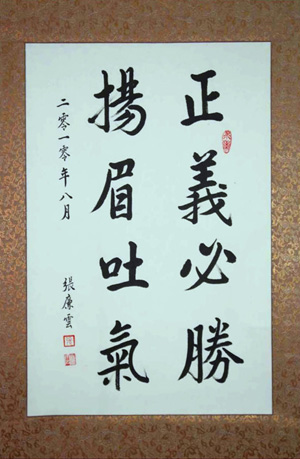 正義必勝
揚眉吐氣
二零一零年八月
張廉雲